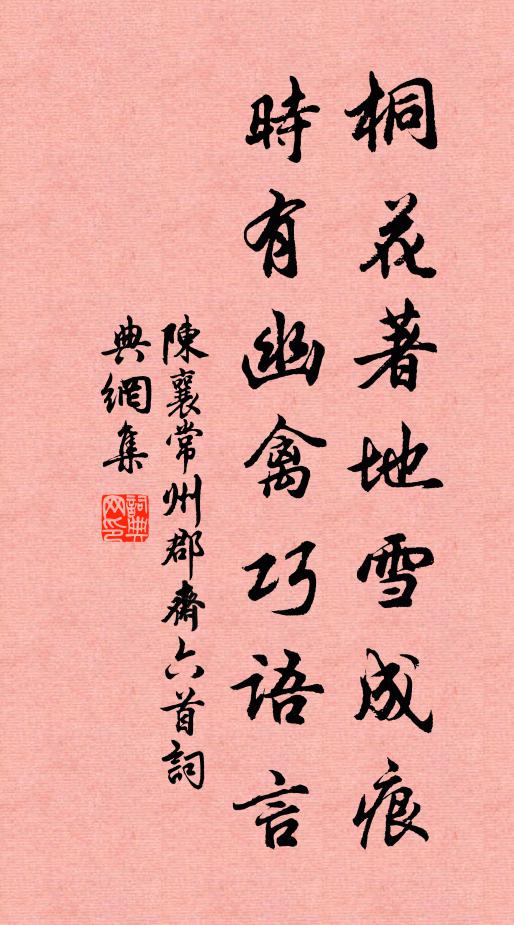 桐花著地雪成痕
時有幽禽巧語言
陳襄常州郡齋六首詞
典網集
詞典网印